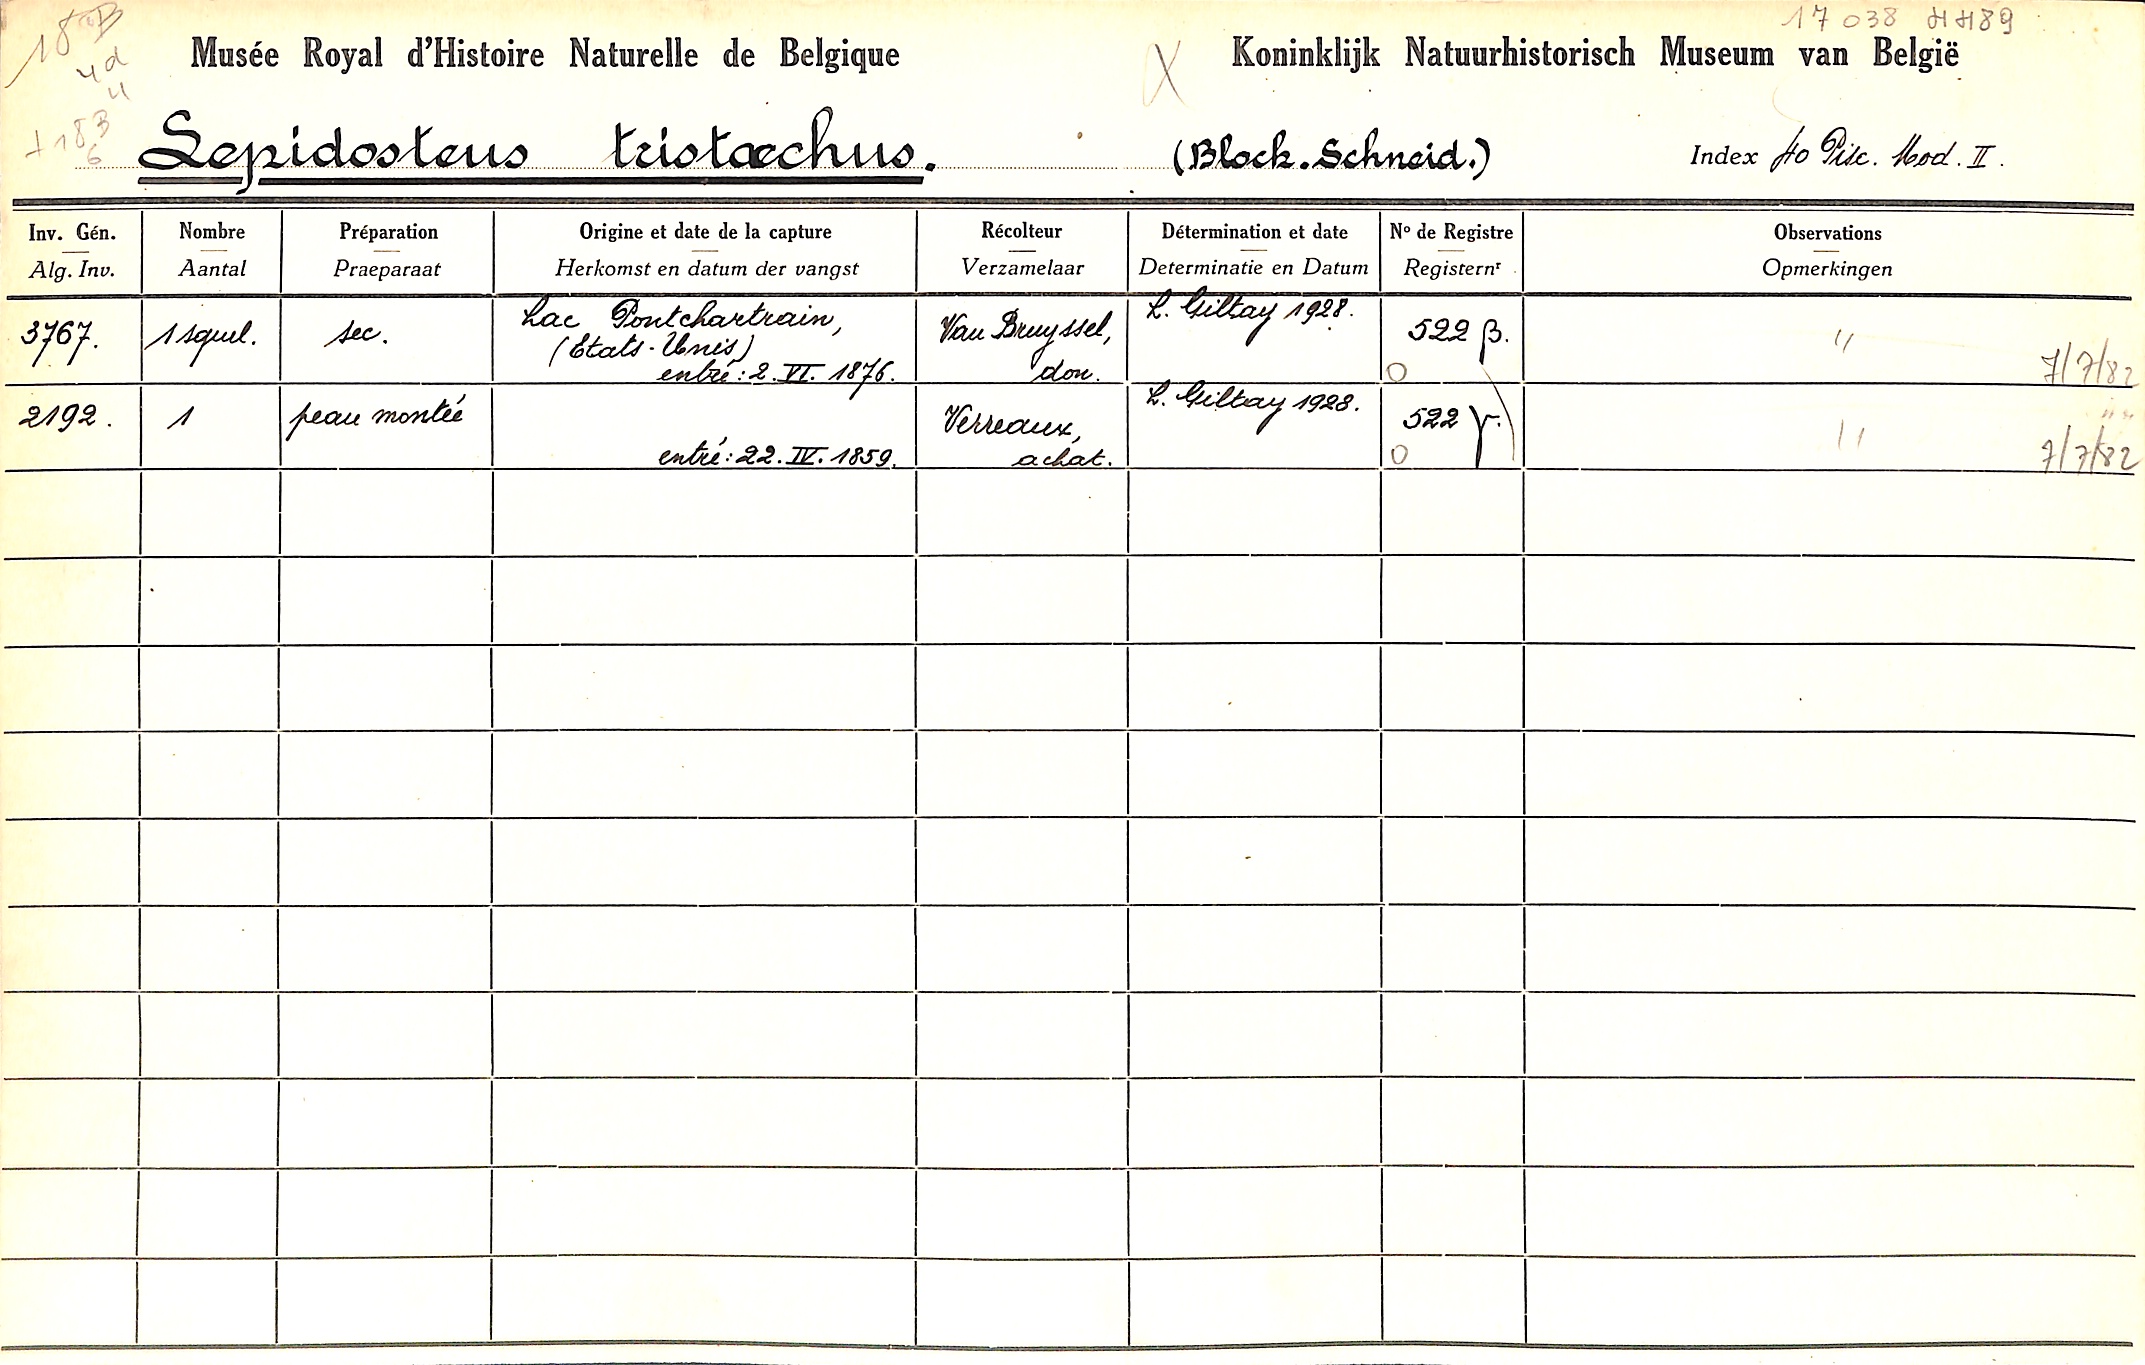 17 038 HH89
18 B
4d
4
+ 18 B
6
Musée Royal d'Histoire Naturelle de Belgique
X
Koninklijk Natuurhistorisch Museum van België
Lepidosteus tristœchus.
(Block. Schneid.)
Index 40 Pisc. Mod. II.
Inv. Gén.
Alg. Inv.
Nombre
Aantal
Préparation
Praeparaat
Origine et date de la capture
Herkomst en datum der vangst
Récolteur
Verzamelaar
Détermination et date
Determinatie en Datum
Nº de Registre
Registernr
Observations
Opmerkingen
3767.
1 squel.
sec.
Lac Pontchartrain,
(Etats-Unis)
entré: 2. VI. 1876.
Van Bruyssel,
don.
L. Giltay 1928.
522 β.
O
"
7/7/82
2192.
1
peau montée
entré: 22. IV. 1859.
Verreaux,
achat.
L. Giltay 1928.
522 γ.
O
"
7/7/82